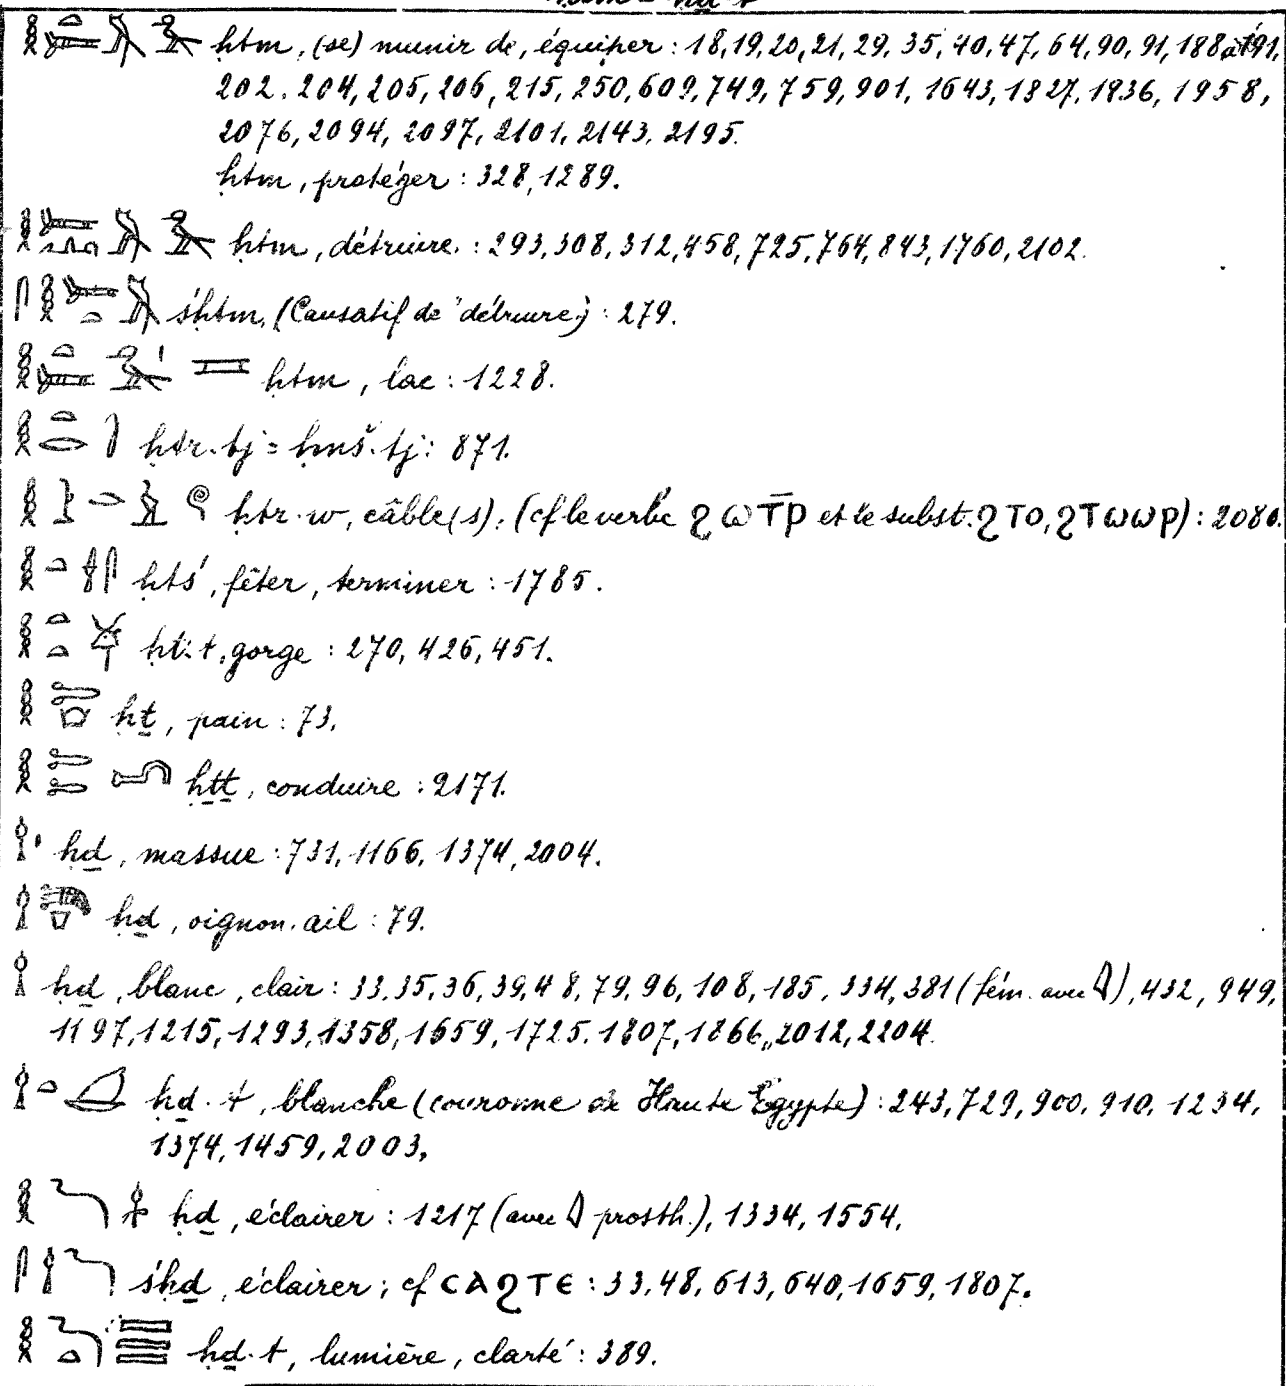 ḥtm, (se) munir de, équiper : 18, 19, 20, 21, 29, 35, 40, 47, 64, 90, 91, 188 à 191,
202. 204, 205, 206, 215, 250, 609, 749, 759, 901, 1643, 1827, 1836, 1958,
2076, 2094, 2097, 2101, 2143, 2195.
ḥtm, protéger : 328, 1289.
ḥtm, détruire. : 293, 308, 312, 458, 725, 764, 843, 1760, 2102.
śḥtm, (Causatif de "détruire") : 279.
ḥtm, lac : 1228.
ḥtr.tj = ḥmś.tj : 871.
ḥtr.w, câble(s). (cf le verbe ϩⲱⲧ̅ⲣ et le subst. ϩⲧⲟ, ϩⲧⲱⲱⲣ) : 2080.
ḥtś, fêter, terminer : 1785.
ḥt.t, gorge : 270, 426, 451.
ḥṯ, pain : 73.
ḥṯṯ, conduire : 2171.
ḥḏ, massue : 731, 1166, 1374, 2004.
ḥḏ, oignon. ail : 79.
ḥḏ, blanc, clair : 33, 35, 36, 39, 48, 79, 96, 108, 185, 334, 381 (fém. avec 𓇋), 432, 949,
1197, 1215, 1293, 1358, 1659, 1725. 1807, 1866, 2012, 2204.
ḥḏ.t, blanche (couronne de Haute Egypte) : 243, 729, 900, 910, 1234,
1374, 1459, 2003,
ḥḏ, éclairer : 1217 (avec 𓇋 prosth.), 1334, 1554.
śḥḏ, éclairer ; cf ⲥⲁϩⲧⲉ : 33, 48, 613, 640, 1659, 1807.
ḥḏ.t, lumière, clarté : 389.